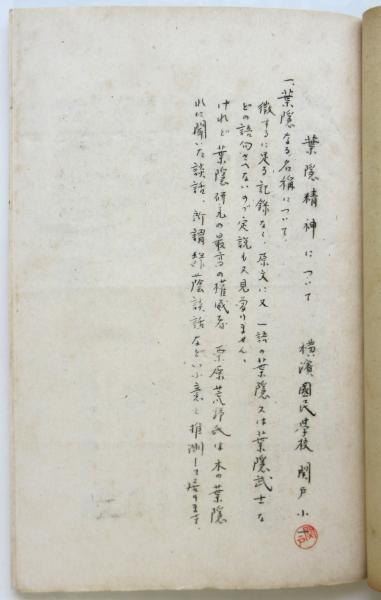 葉隠精神について
横濱國民學校 関戸小
一、葉隠なる名稱について、
徴するに足る記録なく、原文に又一語の葉隠又は葉隠武士な
どの語句さへないので定説も又見當りません。
けれど葉隠研究の最高の権威者 栗原荒野氏は木の葉隠
れに聞いた談話、所謂緑蔭談話などいふ意と推測して居ります。